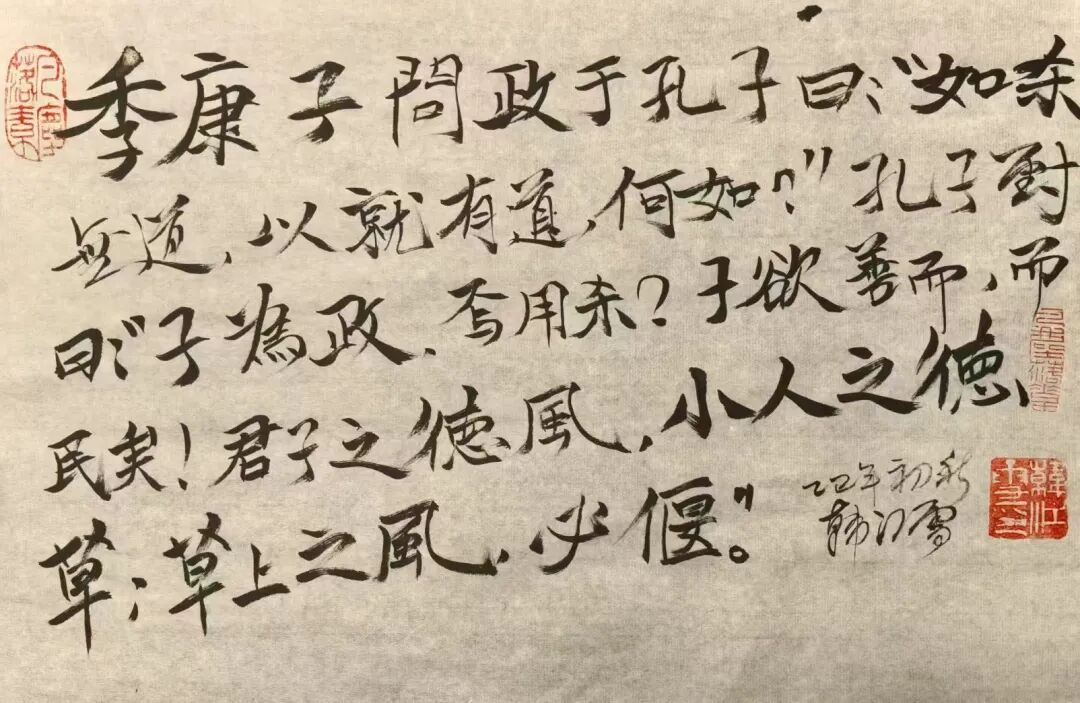 季康子問政于孔子曰:“如杀
無道,以就有道,何如?”孔子對
曰:“子為政,焉用杀?子欲善而,而
民矣!君子之德風,小人之德
草;草上之風,必偃”。
乙巳年初秋
韓江雪